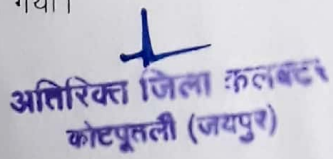 गया।
अतिरिक्त जिला कलक्टर
कोटपूतली (जयपुर)